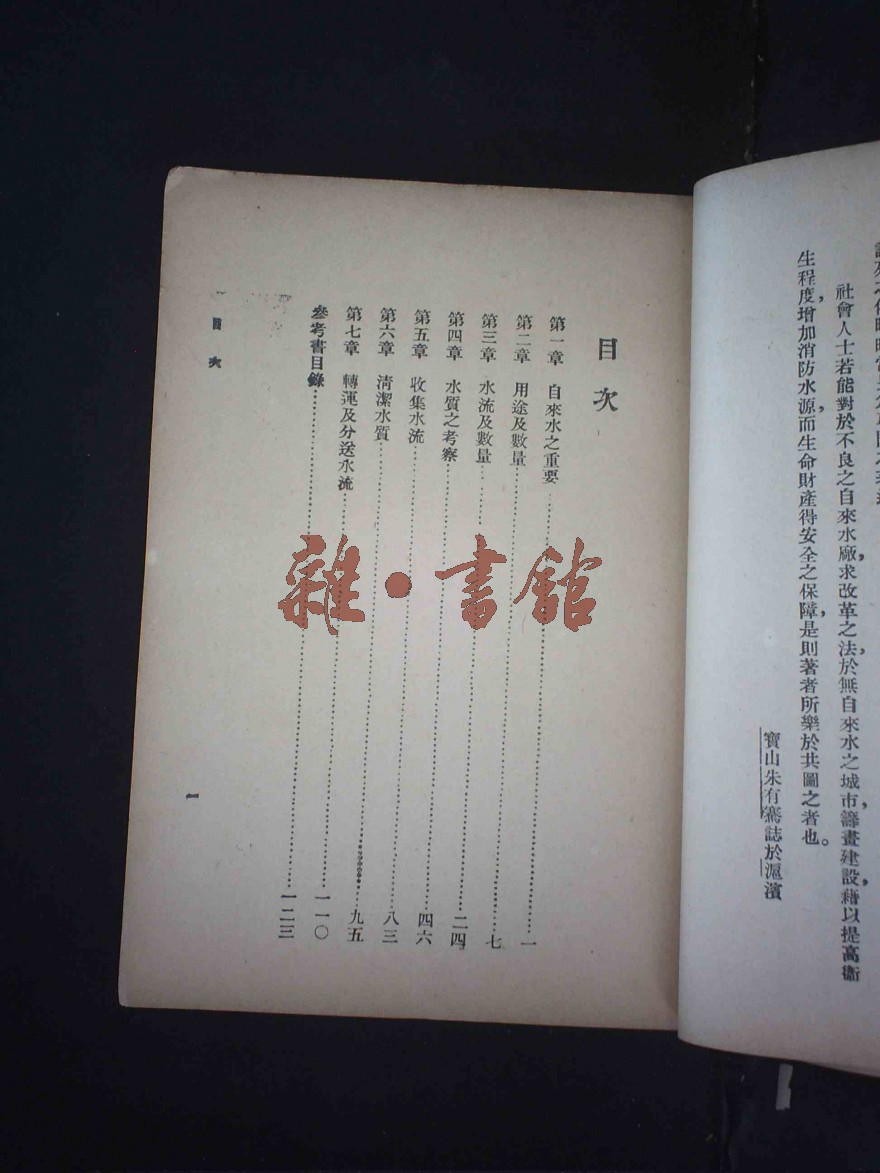 社會人士若能對於不良之自來水廠,求改革之法,於無自來水之城市,籌畫建設,藉以提高衞
生程度,增加消防水源,而生命財產得安全之保障,是則著者所樂於共圖之者也。
寶山朱有騫誌於滬濱
目次
第一章 自來水之重要……一
第二章 用途及數量……七
第三章 水流及數量……二四
第四章 水質之考察……四六
第五章 收集水流……八三
第六章 清潔水質……九五
第七章 轉運及分送水流……一一〇
參考書目錄……一二三
目次
一
雜·書館